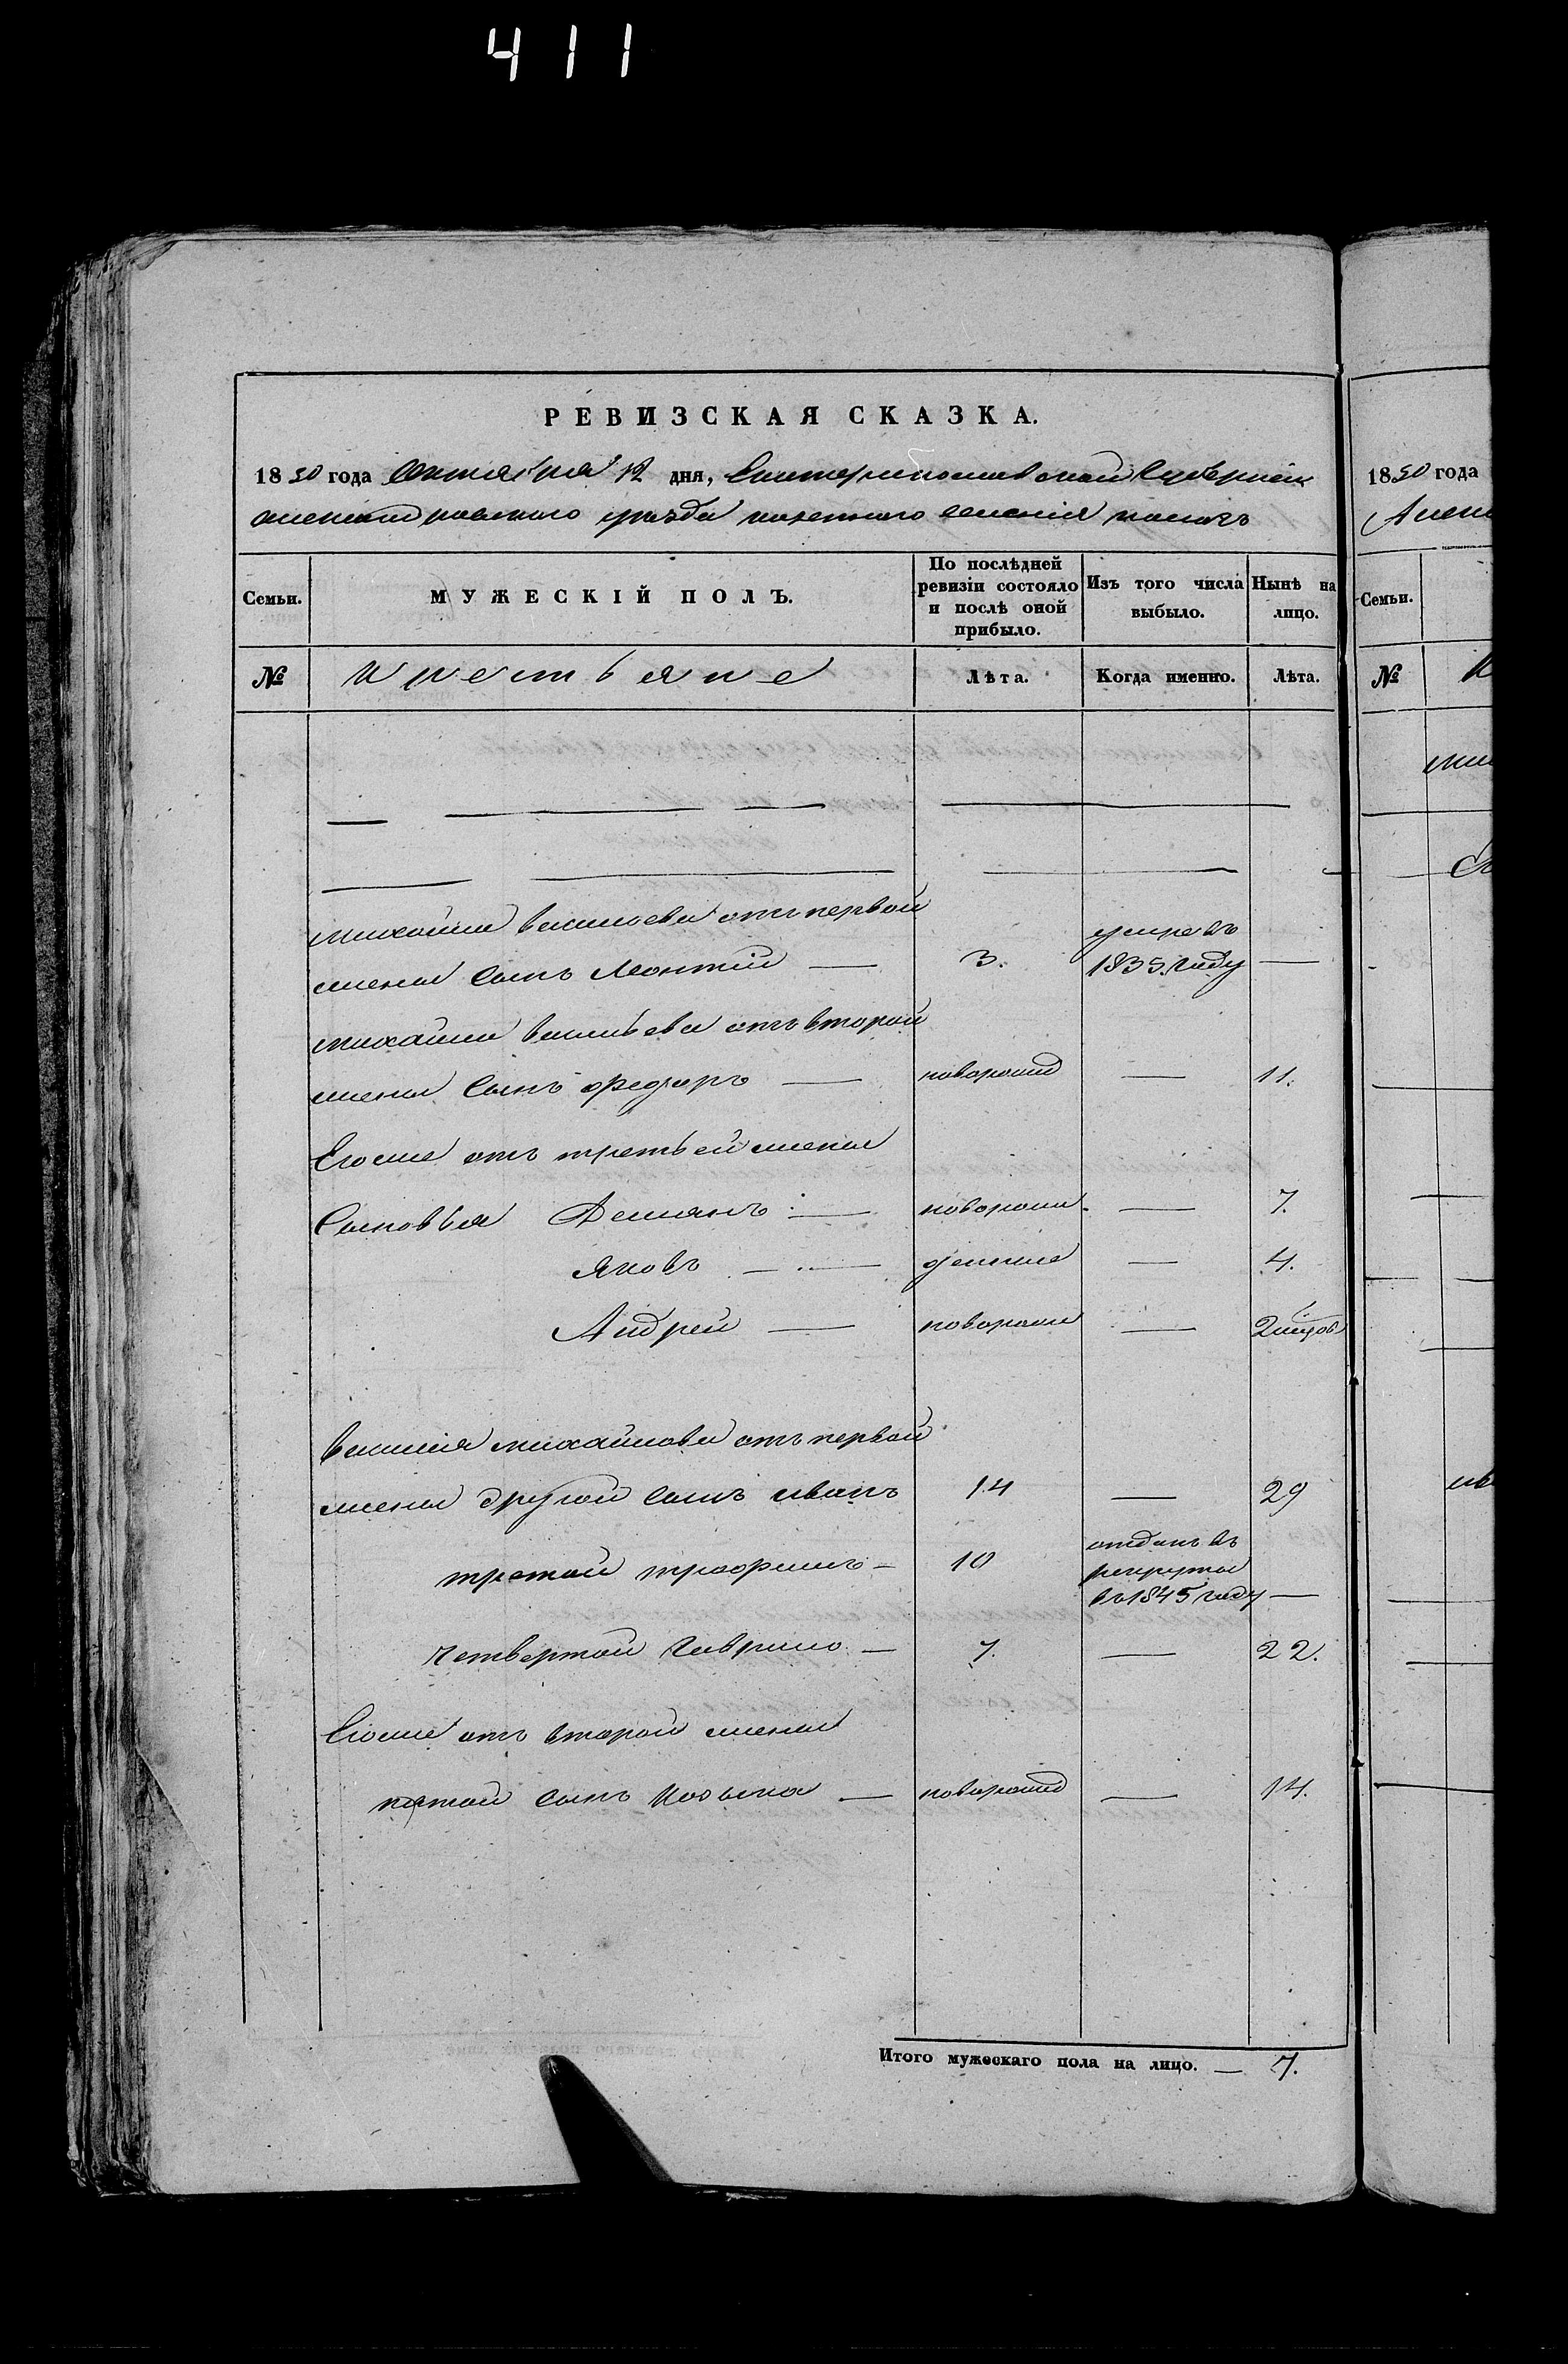 411
РЕВИЗСКАЯ СКАЗКА.
1850 года октября 12 дня, Екатеринославской Губернии
александровского уезда казенного селения
Семьи.
МУЖЕСКІЙ ПОЛЪ.
По послѣдней ревизіи состояло и послѣ оной прибыло.
Изъ того числа выбыло.
Нынѣ на лицо.
№
крестьяне
Лѣта.
Когда именно.
Лѣта.
михайли васильева отъ первой
жены сынъ Леонтий — 3. умре въ 1835. году —
михайли васильева отъ второй
жены сынъ федоръ — новорожд — 11.
Егоже отъ третьей жены
сыновья Демянъ — новорожд. — 7.
яковъ — — 4.
Андрей — новорожд —
василия михайлова отъ первой
жены другой сынъ иванъ 14 — 29
третой трофимъ — 10 отданъ въ рекруты въ 1845 году —
четвертой гаврило — 7. — 22.
Егоже отъ второй жены
пятой сынъ козьма — новорожд — 14.
Итого мужескаго пола на лицо. — 7.
1850 года
Семьи.
№